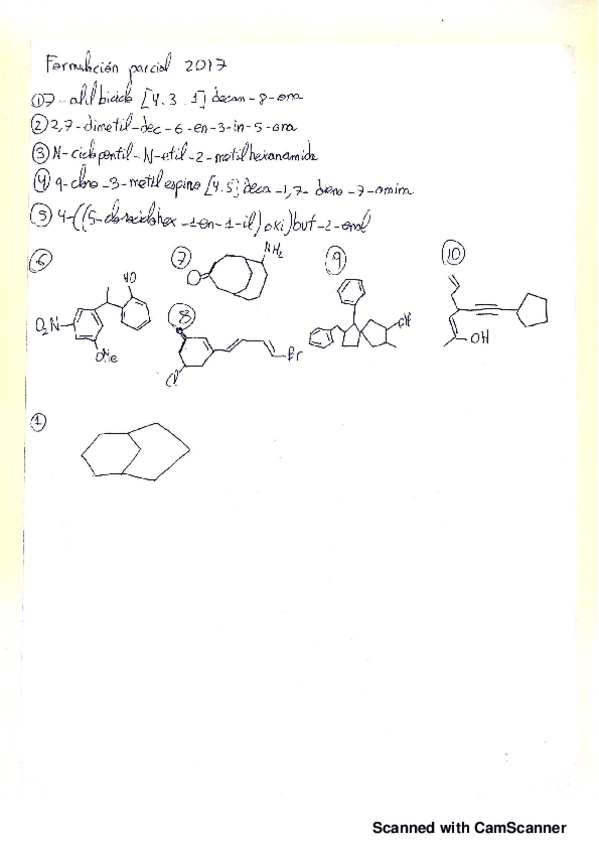 Formulación parcial 2017
① 7-alil biciclo [4.3.1] decan-8-ona
② 2,7-dimetil-dec-6-en-3-in-5-ona
③ N-ciclopentil-N-etil-2-metilhexanamida
④ 9-cloro-3-metil espiro [4.5] deca-1,7-dieno-7-amina
⑤ 4-((5-clorociclohex-1en-1-il)oxi)but-2-enol
⑥ ⑦ NH₂ ⑨ ⑩
O
HO
O₂N
OMe
⑧
Cl
Br
OH
OH
①
Scanned with CamScanner